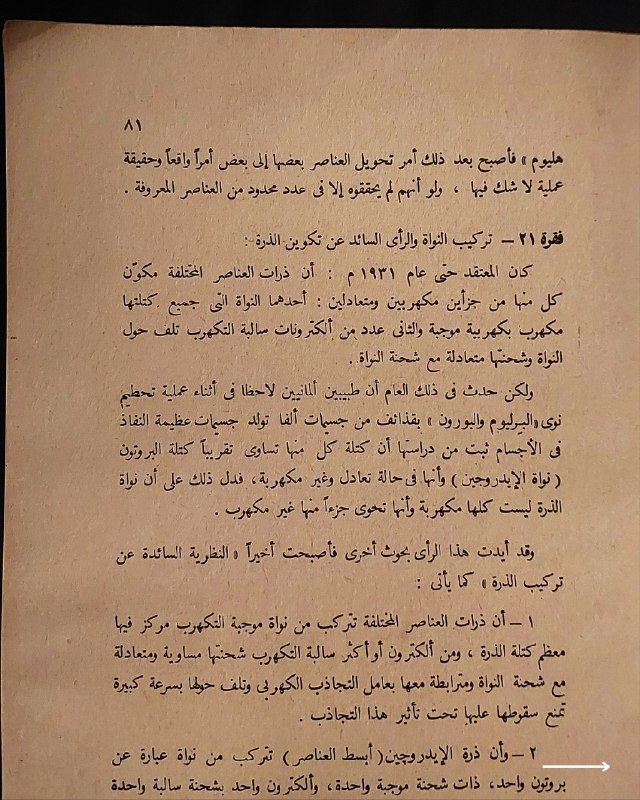 ٨١
هليوم » فأصبح بعد ذلك أمر تحويل العناصر بعضها إلى بعض أمراً واقعاً وحقيقة
عملية لا شك فيها ، ولو أنهم لم يحققوه إلا فى عدد محدود من العناصر المعروفة .
فقرة ٢١ – تركيب النواة والرأى السائد عن تكوين الذرة :
كان المعتقد حتى عام ١٩٣١ م : أن ذرات العناصر المختلفة مكوّن
كل منها من جزأين مكهربين ومتعادلين : أحدهما النواة التى جميع كتلتها
مكهرب بكهربية موجبة والثانى عدد من ألكترونات سالبة التكهرب تلف حول
النواة وشحنتها متعادلة مع شحنة النواة .
ولكن حدث فى ذلك العام أن طبيبين ألمانيين لاحظا فى أثناء عملية تحطيم
نوى «البرليوم والبورون » بقذائف من جسيمات ألفا تولد جسيمات عظيمة النفاذ
فى الأجسام ثبت من دراستها أن كتلة كل منها تساوى تقريباً كتلة البروتون
( نواة الإيدروجين ) وأنها فى حالة تعادل وغير مكهربة ، فدل ذلك على أن نواة
الذرة ليست كلها مكهربة وأنها تحوى جزءاً منها غير مكهرب .
وقد أيدت هذا الرأى بحوث أخرى فأصبحت أخيراً « النظرية السائدة عن
تركيب الذرة » كما يأتى :
١ – أن ذرات العناصر المختلفة تتركب من نواة موجبة التكهرب مركز فيها
معظم كتلة الذرة ، ومن ألكترون أو أكثر سالبة التكهرب شحنتها مساوية ومتعادلة
مع شحنة النواة ومترابطة معها بعامل التجاذب الكهربى وتلف حولها بسرعة كبيرة
تمنع سقوطها عليها تحت تأثير هذا التجاذب .
٢ – وأن ذرة الإيدروچين ( أبسط العناصر ) تتركب من نواة عبارة عن
بروتون واحد ، ذات شحنة موجبة واحدة ، وألكترون واحد بشحنة سالبة واحدة